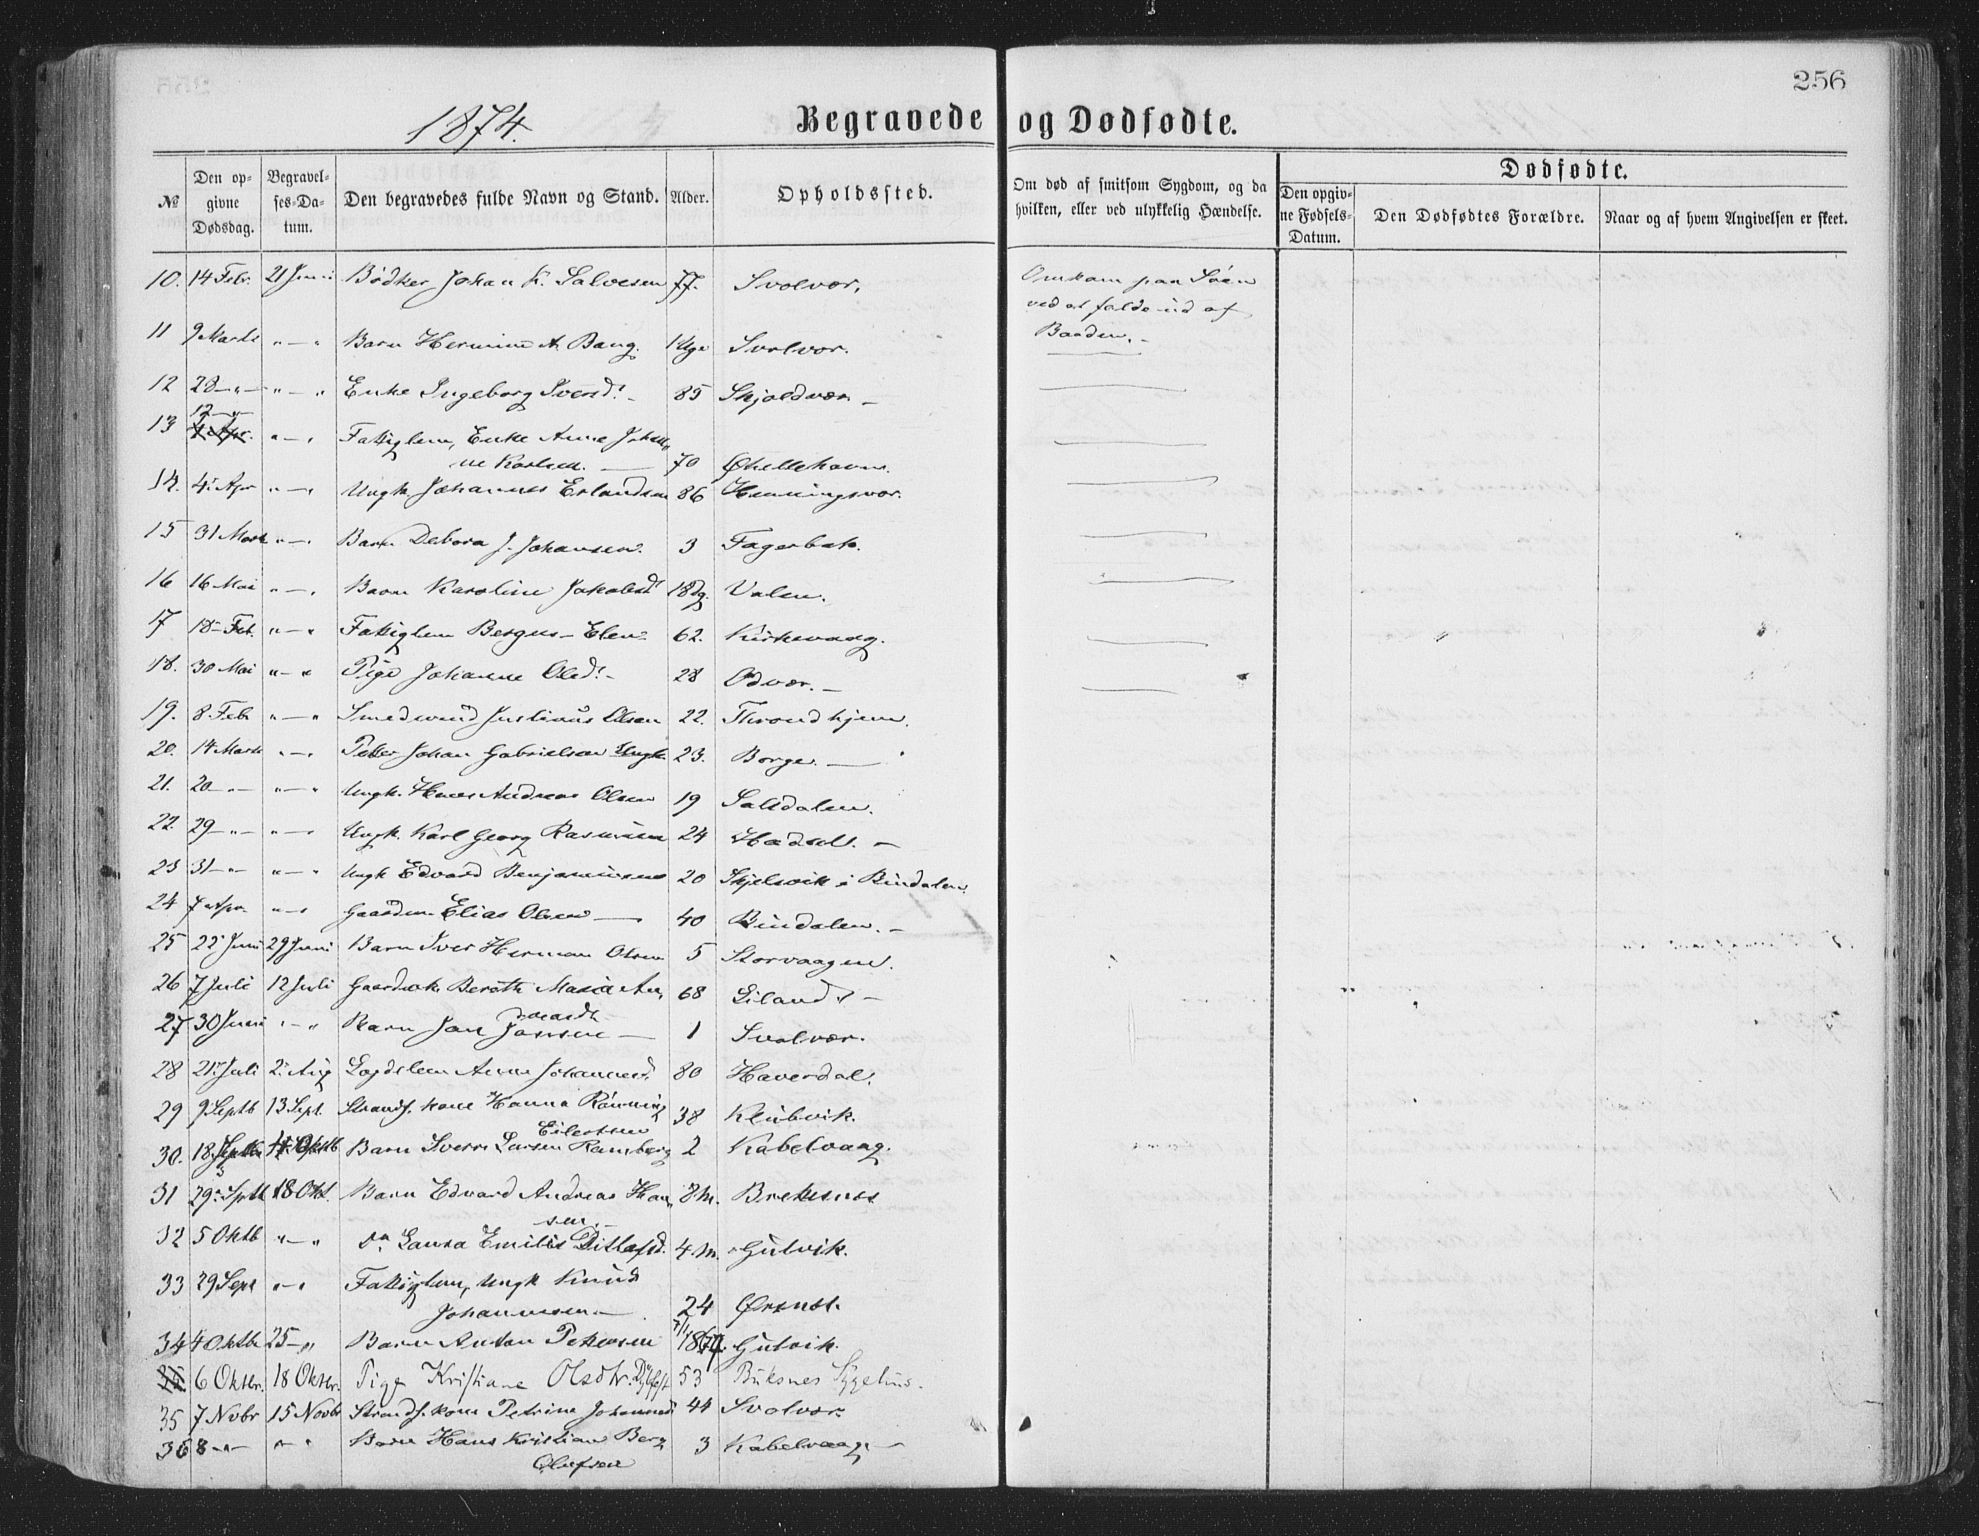 256
1874.
Begravede og Dødfødte.
№
Den opgivne Dødsdag.
Begravelses-Datum.
Den begravedes fulde Navn og Stand.
Alder.
Opholdssted.
Om død af smitsom Sygdom, og da hvilken, eller ved ulykkelig Hændelse.
Dødfødte.
Den opgivne Fødsels-Datum.
Den Dødfødtes Forældre.
Naar og af hvem Angivelsen er skeet.
10. 14 Febr. 21 Juni Bødker Johan K. Salvesen 77. Svolvær. Omkom paa Søen
ved at falde ud af
Baaden.
11 9 Marts " — " Barn Hermine A. Bang. 1 Uge Svolvær.
12 28 — " — " — " Enke Ingeborg Iversd. 85 Skjoldvær —
12 — "
13 " — " Fattiglem, Enke Anne Johan
ne Karlsen. — 70
14. 4. Apr " — " Ungk. Johannes Erlandsen 86 Henningsvær.
15 31 Marts " — " Barn Debora J. Johansen. 3 Fagerbak.
16 16 Mai " — " Barn Karoline Jakobsd 18 dg. Valen.
17 18 Feb. " — " Fattiglem Bergus — Elen 62. Kirkevaag.
18. 30 Mai " — " Pige Johanne Olsd. 28 Odvær. —
19. 8 Feb " — " Smedsvend Justinus Olsen 22. Throndhjem.
20. 14 Marts " — " Peter Johan Gabrielsen Ungk. 23. Borge. —
21. 20 — " — " — " Ungk. Hans Andreas Olsen 19 Saltdalen.
22. 29 — " — " — " Ungk. Karl Georg Rasmussen 24 Hadsel. —
23 31 — " — " — " Ungk Edvard Benjaminsen 20 Skjelsvik i Bindalen
24 7 Apr. " — " Gaardm. Elias Olsen — 40 Bindalen. —
25 22 Juni 29 Juni Barn Iver Herman Olsen 5 Storvaagen.
26 7 Juli 12 Juli Gaardm.k. Beroth Maria An, 68 Eiland. —
27 30 Juni " — " Barn Jan Jansen — 1 Svolvær.
28 21 Juli 2. Aug Lægdslem Anne Johannesd. 80 Haverdal.
29 9 Septb 13 Sept. Strands. kone Hanna Rønning 38 Klubvik.
Eilertsen
30. 18 Septb Oktb Barn Sverre Larsen Ramberg 2 Kabelvaag.
31 29. Septb 18 Okt. Barn Edvard Andreas Han 8 M. Breknes
sen.
32 5 Oktb " — " Do. Laura Emilie Ditlefsd. 4 M. Gulvik.
33 29 Sept " — " Fattiglem, Ungk Knud
Johannesen — 24 Ørsnes.
34 4 Oktbr 25 — " Barn Anton Petersen 7/1 1874. Gulvik.
6 Oktbr. 18 Oktbr. Pige Kristiane Olsdtr. 53 Buksnes Sygehus.
35 7 Novbr 15 Novbr Strands. kone Petrine Johannesd 44 Svolvær.
36 8 — " — " — " Barn Hans Kristian Berg 3 Kabelvaag —
Olufsen